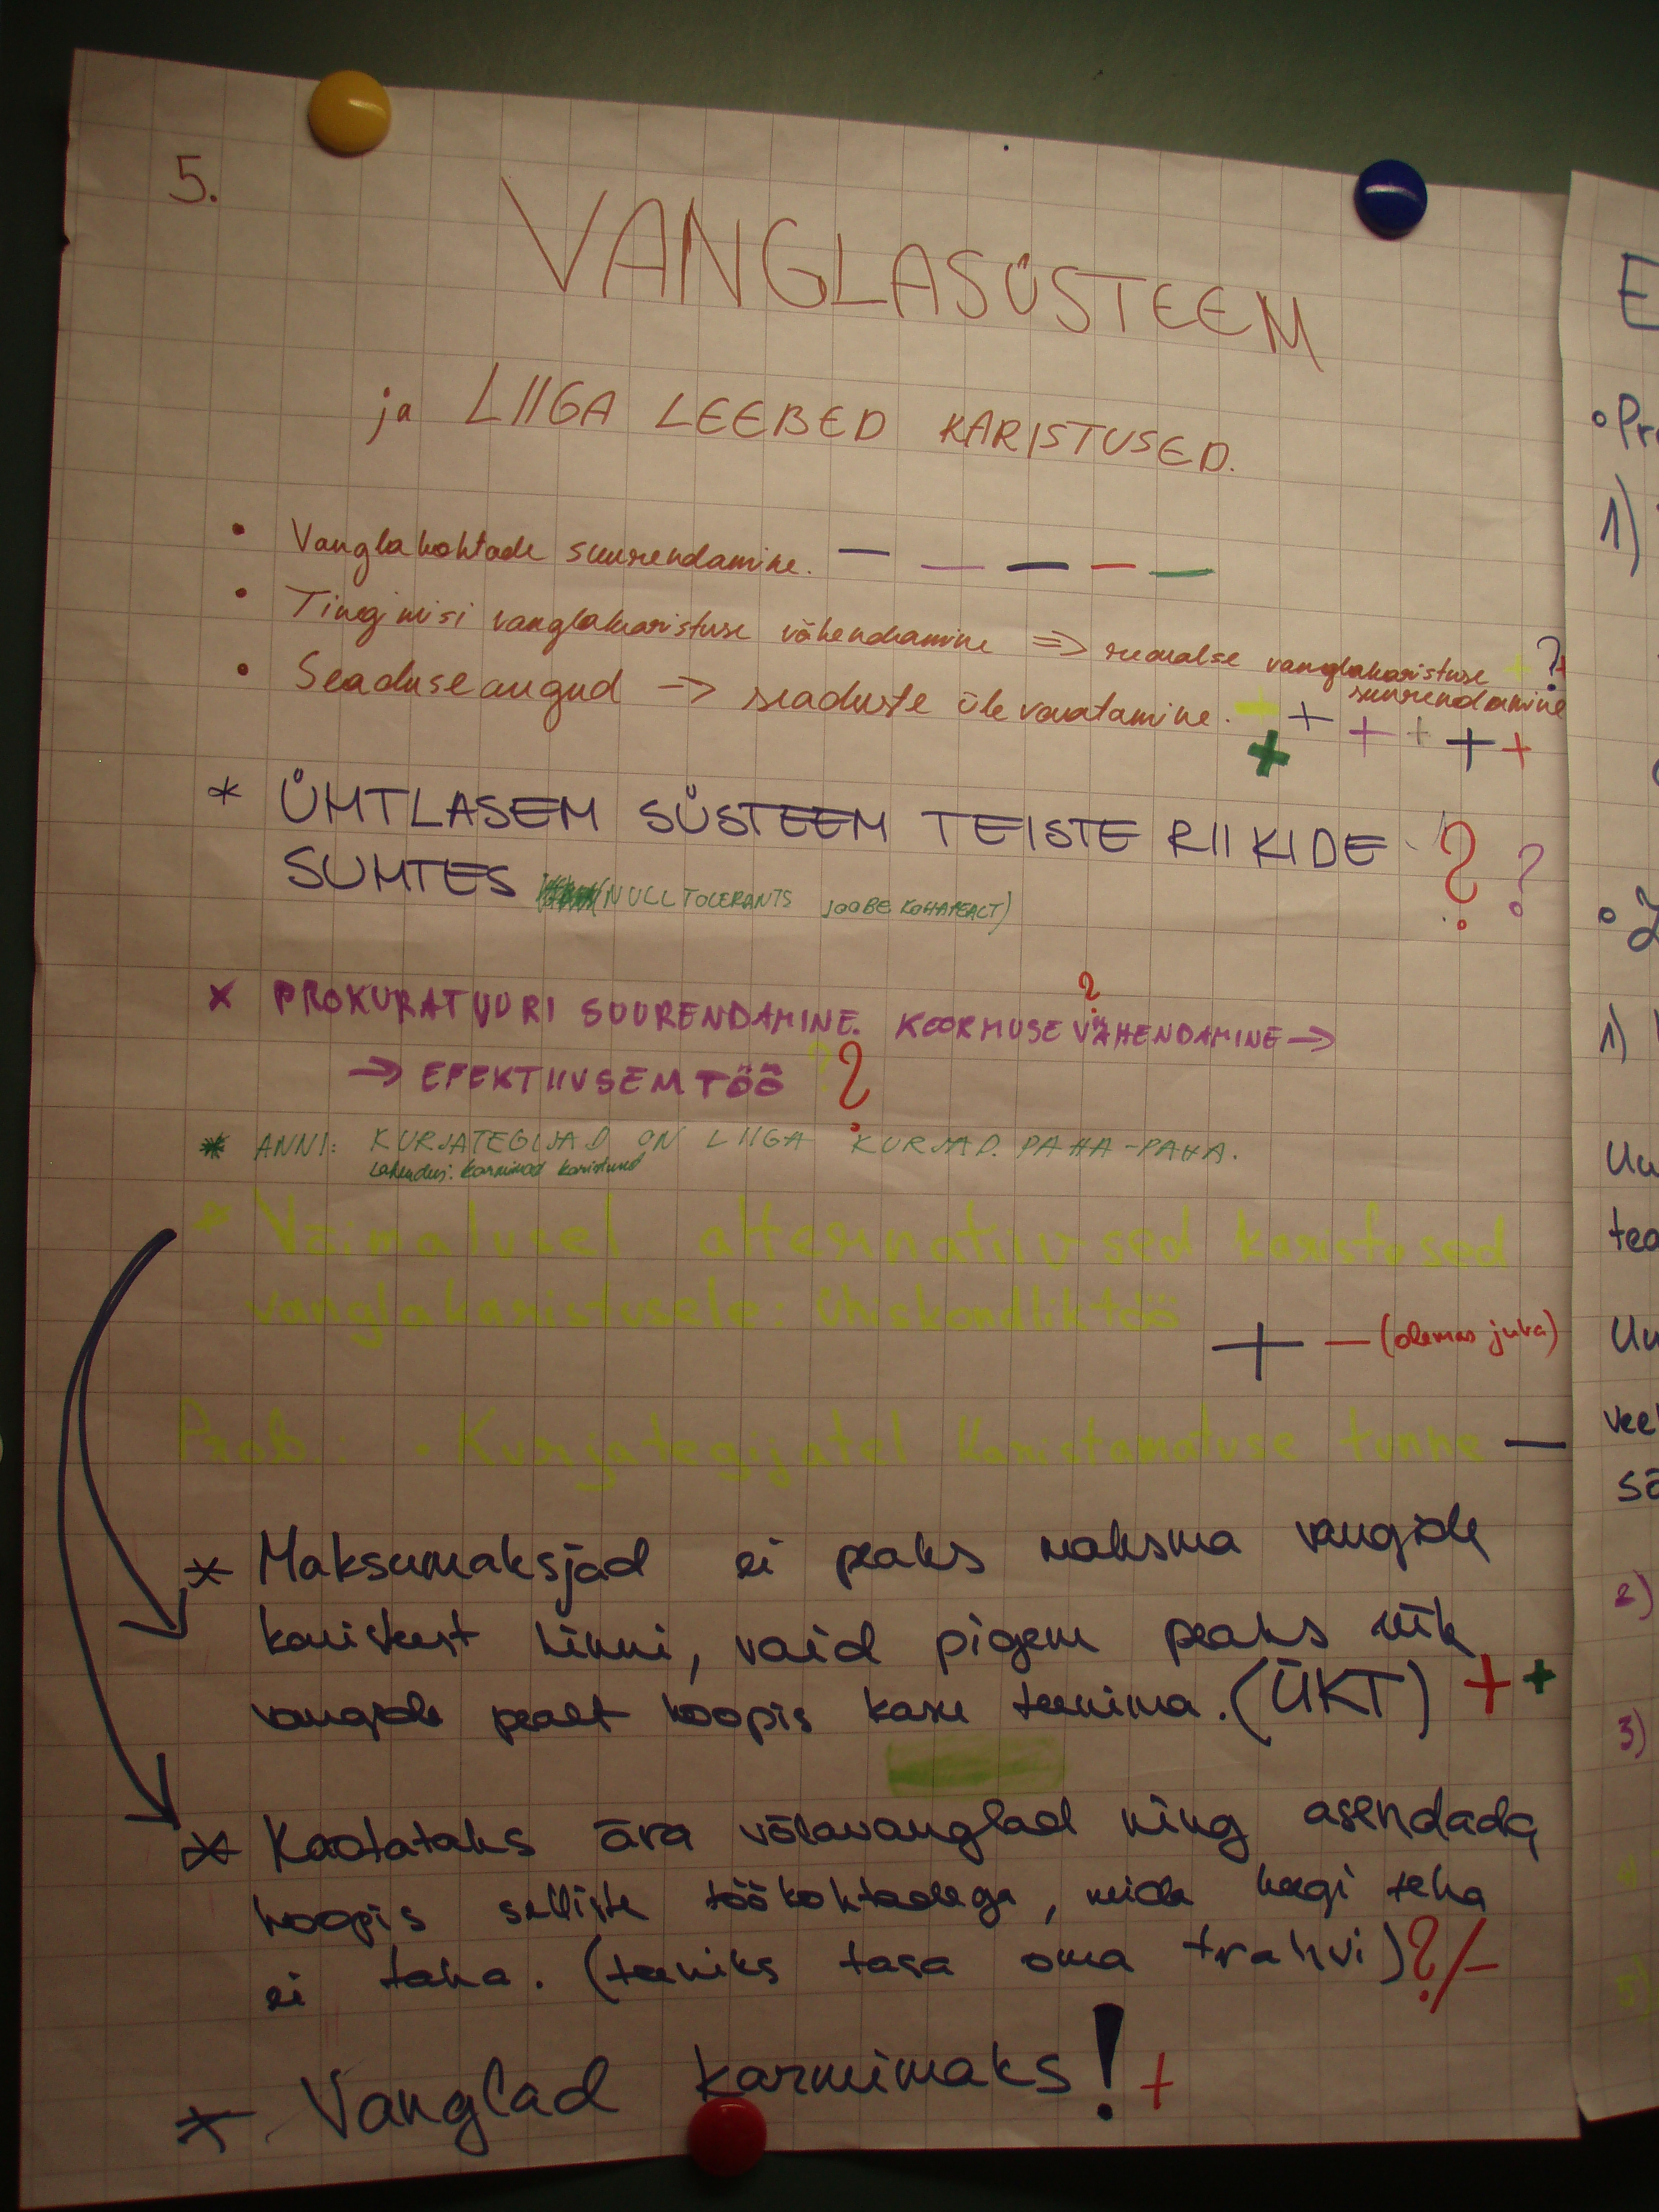 5.
VANGLASÜSTEEM
ja LIIGA LEEBED KARISTUSED.
• Vanglakohtade suurendamine. — — — — —
• Tingimisi vanglakaristuse vähendamine => reaalse vanglakaristuse + ?
suurendamine
• Seaduseaugud -> seaduste üle vaatamine. + + + + + +
+
* ÜHTLASEM SÜSTEEM TEISTE RIIKIDE ? ?
SUHTES (NULLTOLERANTS JOOBE KOHAPEALT)
?
× PROKURATUURI SUURENDAMINE. KOORMUSE VÄHENDAMINE ->
-> EFEKTIIVSEM TÖÖ ? ?
* ANNI: KURJATEGIJAD ON LIIGA KURJAD. PAHA-PAHA.
Lahendus: karmimad karistused
* Võimalusel alternatiivsed karistused
vanglakaristusele: ühiskondlik töö
+ — (olemas juba)
Prob.: • Kurjategijatel karistamatuse tunne —
* Maksumaksjad ei peaks maksma vangide
karistust kinni, vaid pigem peaks riik
vangide pealt hoopis kasu teenima. (ÜKT) + +
* Kaotataks ära võlavanglad ning asendada
hoopis selliste töökohtadega, mida keegi teha
ei taha. (teeniks tasa oma trahvi) ?/—
* Vanglad karmimaks! +
E
• Pr
1)
•
1)
Uu
tea
Uu
veel
sä
2)
3)
5)